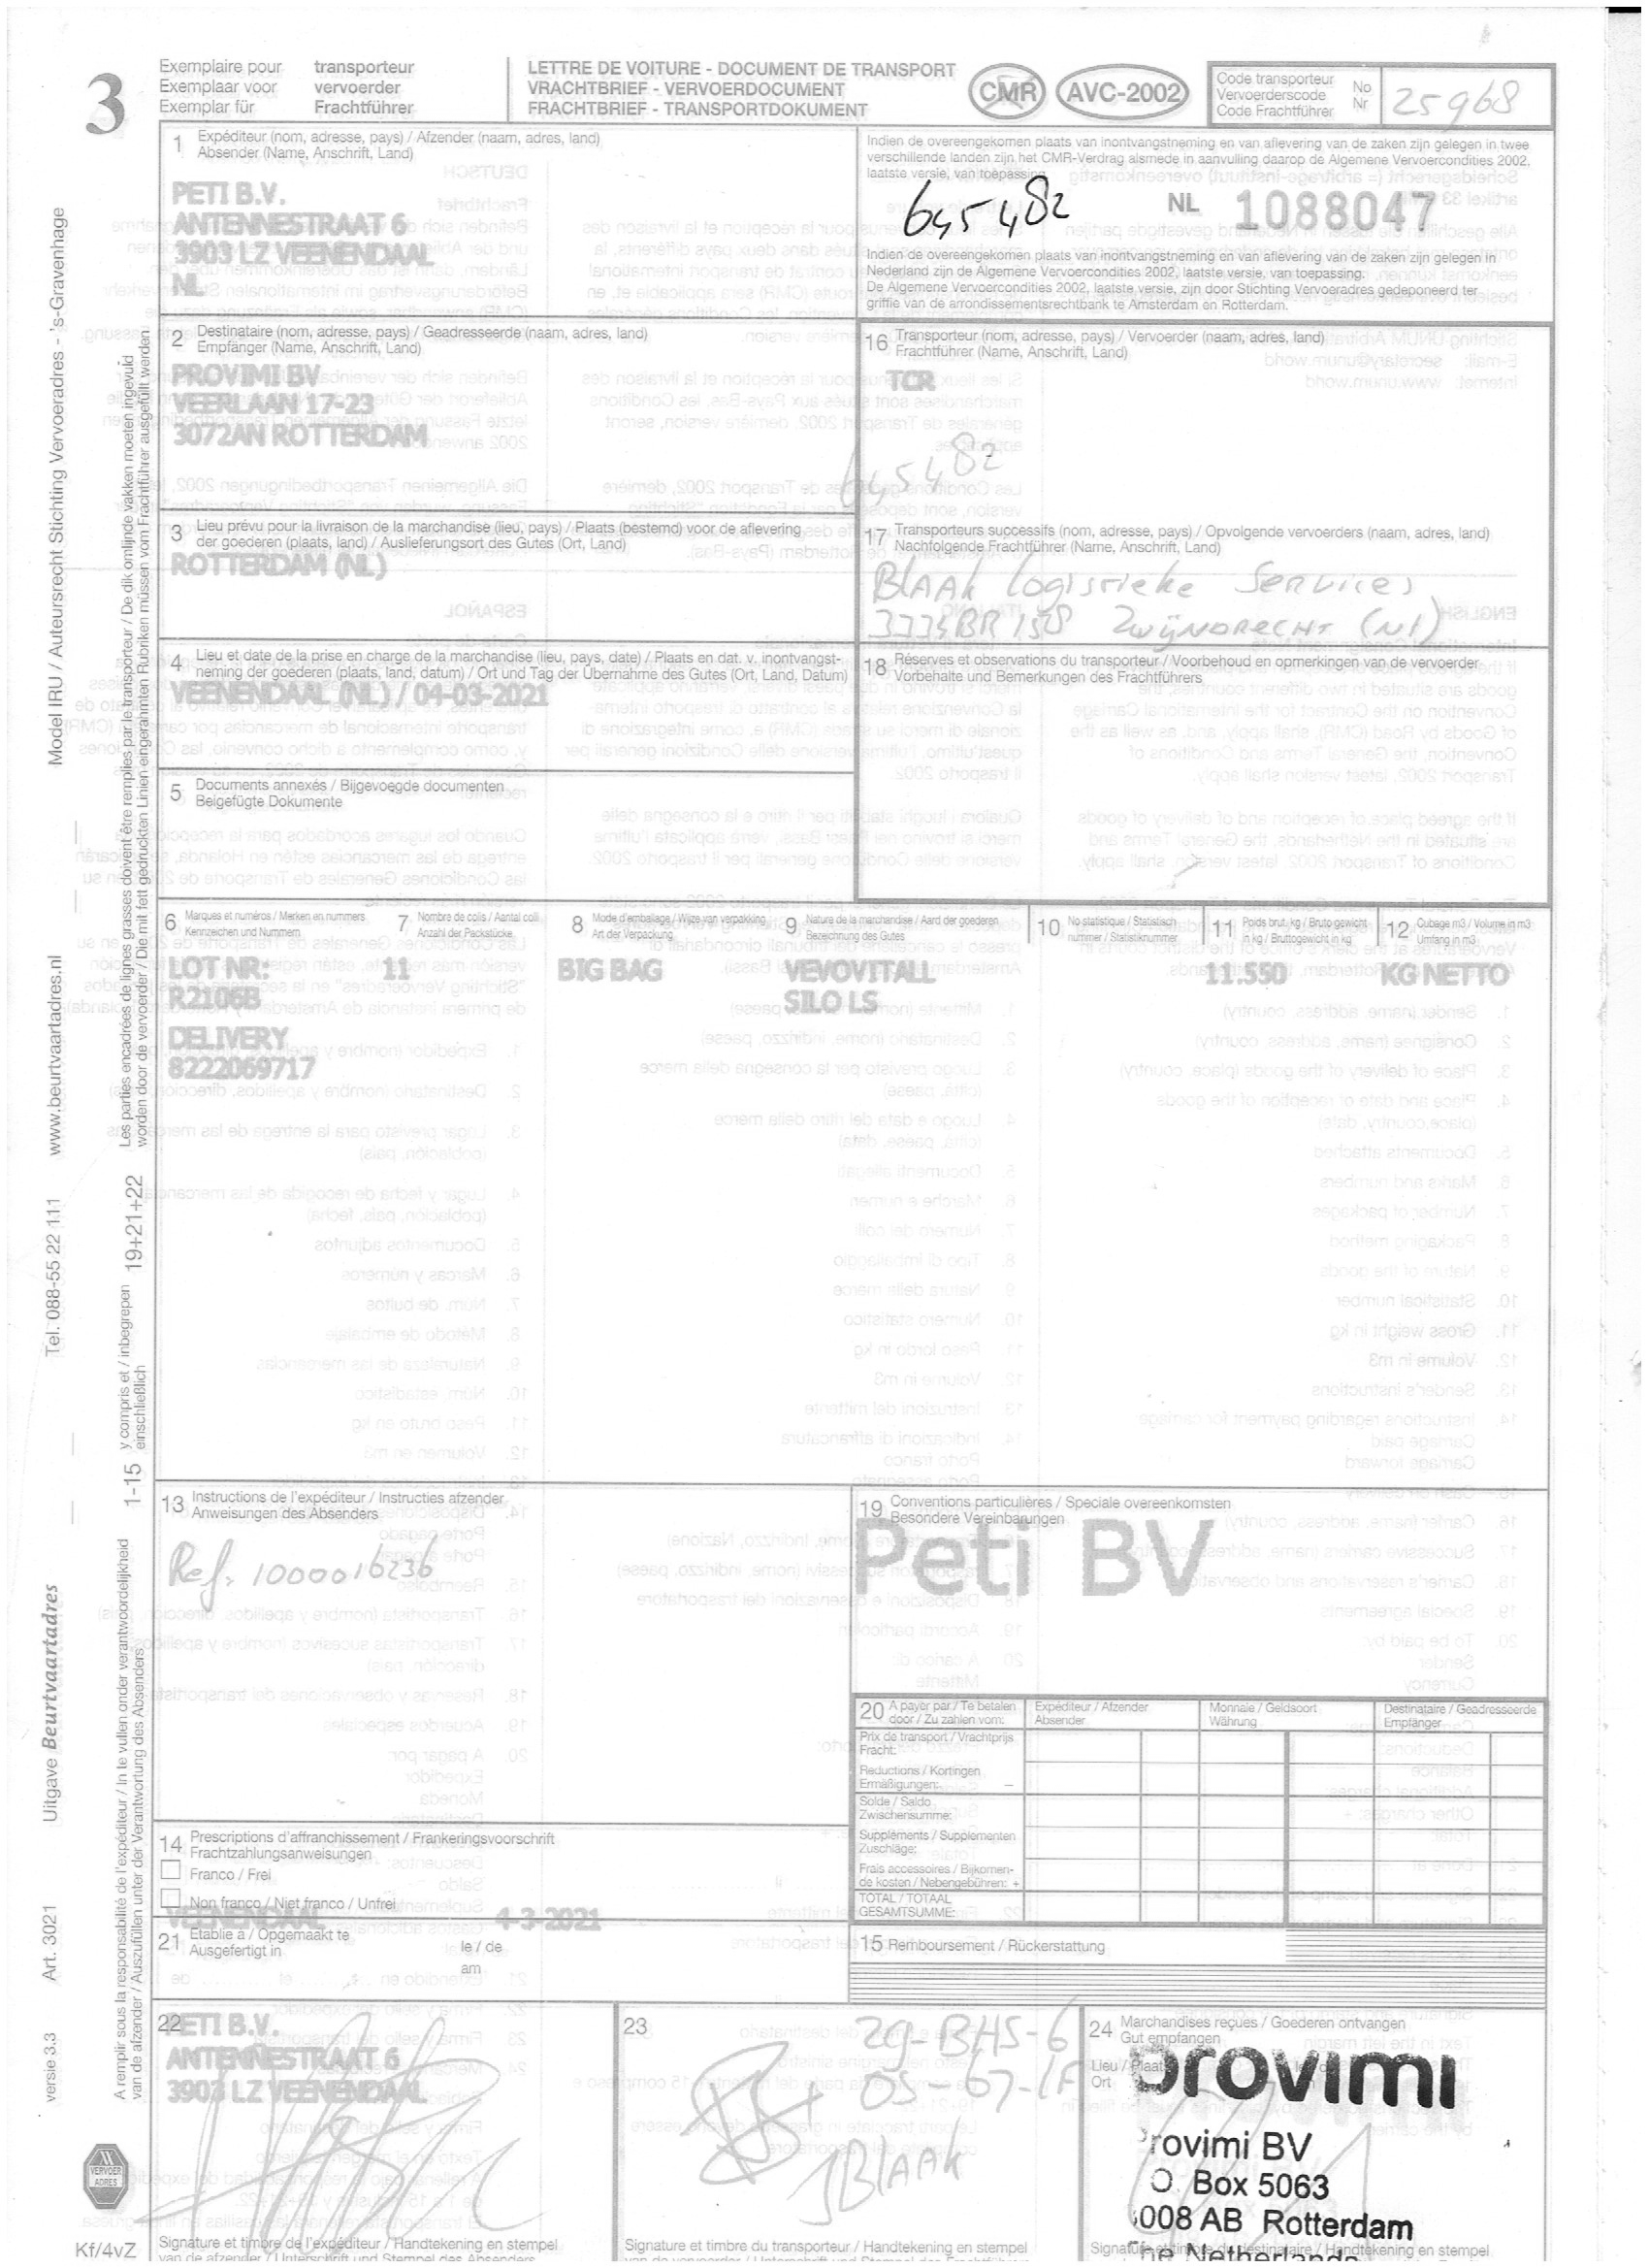 3
Exemplaire pour transporteur
Exemplaar voor vervoerder
Exemplar für Frachtführer
LETTRE DE VOITURE - DOCUMENT DE TRANSPORT
VRACHTBRIEF - VERVOERDOCUMENT
FRACHTBRIEF - TRANSPORTDOKUMENT
CMR AVC-2002
Code transporteur
Vervoerderscode
Code Frachtführer
No
Nr
25968
1 Expéditeur (nom, adresse, pays) / Afzender (naam, adres, land)
Absender (Name, Anschrift, Land)
PETI B.V.
ANTENNESTRAAT 6
3903 LZ VEENENDAAL
NL
Indien de overeengekomen plaats van inontvangstneming en van aflevering van de zaken zijn gelegen in twee
verschillende landen zijn het CMR-Verdrag alsmede in aanvulling daarop de Algemene Vervoercondities 2002,
laatste versie, van toepassing.
645482
NL 1088047
Indien de overeengekomen plaats van inontvangstneming en van aflevering van de zaken zijn gelegen in
Nederland zijn de Algemene Vervoercondities 2002, laatste versie, van toepassing.
De Algemene Vervoercondities 2002, laatste versie, zijn door Stichting Vervoeradres gedeponeerd ter
griffie van de arrondissementsrechtbank te Amsterdam en Rotterdam.
2 Destinataire (nom, adresse, pays) / Geadresseerde (naam, adres, land)
Empfänger (Name, Anschrift, Land)
PROVIMI BV
VEERLAAN 17-23
3072AN ROTTERDAM
16 Transporteur (nom, adresse, pays) / Vervoerder (naam, adres, land)
Frachtführer (Name, Anschrift, Land)
TCR
645482
3 Lieu prévu pour la livraison de la marchandise (lieu, pays) / Plaats (bestemd) voor de aflevering
der goederen (plaats, land) / Auslieferungsort des Gutes (Ort, Land)
ROTTERDAM (NL)
17 Transporteurs successifs (nom, adresse, pays) / Opvolgende vervoerders (naam, adres, land)
Nachfolgende Frachtführer (Name, Anschrift, Land)
BLAAK Logistieke Services
3334BR 158 Zwijndrecht (Nl)
4 Lieu et date de la prise en charge de la marchandise (lieu, pays, date) / Plaats en dat. v. inontvangst-
neming der goederen (plaats, land, datum) / Ort und Tag der Übernahme des Gutes (Ort, Land, Datum)
VEENENDAAL (NL) / 04-03-2021
18 Réserves et observations du transporteur / Voorbehoud en opmerkingen van de vervoerder
Vorbehalte und Bemerkungen des Frachtführers
5 Documents annexés / Bijgevoegde documenten
Beigefügte Dokumente
6 Marques et numéros / Merken en nummers
Kennzeichen und Nummern
7 Nombre de colis / Aantal colli
Anzahl der Packstücke
8 Mode d'emballage / Wijze van verpakking
Art der Verpackung
9 Nature de la marchandise / Aard der goederen
Bezeichnung des Gutes
10 No statistique / Statistisch
nummer / Statistiknummer
11 Poids brut, kg / Bruto gewicht
in kg / Bruttogewicht in kg
12 Cubage m3 / Volume in m3
Umfang in m3
LOT NR: 11 BIG BAG VEVOVITALL 11.550 KG NETTO
R2106B SILO LS
DELIVERY
8222069717
13 Instructions de l'expéditeur / Instructies afzender
Anweisungen des Absenders
Ref: 1000016236
19 Conventions particulières / Speciale overeenkomsten
Besondere Vereinbarungen
Peti BV
20 A payer par / Te betalen
door / Zu zahlen vom:
Expéditeur / Afzender
Absender
Monnaie / Geldsoort
Währung
Destinataire / Geadresseerde
Empfänger
Prix de transport / Vrachtprijs
Fracht:
Reductions / Kortingen
Ermäßigungen: –
Solde / Saldo
Zwischensumme:
Suppléments / Supplementen
Zuschläge:
Frais accessoires / Bijkomen-
de kosten / Nebengebühren: +
TOTAL / TOTAAL
GESAMTSUMME:
14 Prescriptions d'affranchissement / Frankeringsvoorschrift
Frachtzahlungsanweisungen
Franco / Frei
Non franco / Niet franco / Unfrei
VEENENDAAL 4-3-2021
21 Etablie à / Opgemaakt te
Ausgefertigt in
le / de
am
15 Remboursement / Rückerstattung
22
PETI B.V.
ANTENNESTRAAT 6
3903 LZ VEENENDAAL
Signature et timbre de l'expéditeur / Handtekening en stempel
van de afzender / Unterschrift und Stempel des Absenders
23
29-BHS-6
JBLAAK
Signature et timbre du transporteur / Handtekening en stempel
24 Marchandises reçues / Goederen ontvangen
Gut empfangen
Lieu / Plaats
Ort
provimi
rovimi BV
O. Box 5063
008 AB Rotterdam
The Netherlands
Signature et timbre du destinataire / Handtekening en stempel
Model IRU / Auteursrecht Stichting Vervoeradres - 's-Gravenhage
www.beurtvaartadres.nl
Tel. 088-55 22 111
Uitgave Beurtvaartadres
Art. 3021
versie 3.3
Les parties encadrées de lignes grasses doivent être remplies par le transporteur / De dik omlijnde vakken moeten ingevuld
worden door de vervoerder / Die mit fett gedruckten Linien eingerahmten Rubriken müssen vom Frachtführer ausgefüllt werden
19+21+22
y compris et / inbegrepen
einschließlich
1-15
A remplir sous la responsabilité de l'expéditeur / In te vullen onder verantwoordelijkheid
van de afzender / Auszufüllen unter der Verantwortung des Absenders
VERVOER
ADRES
Kf/4vZ